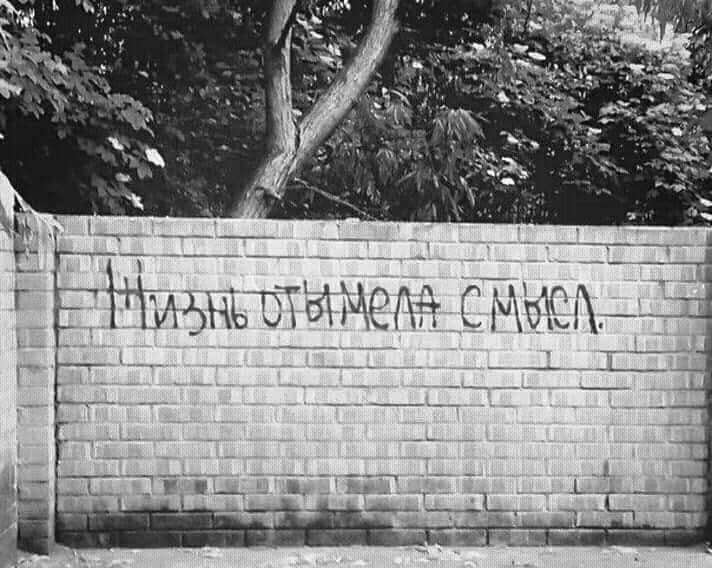 Жизнь отымела смысл.